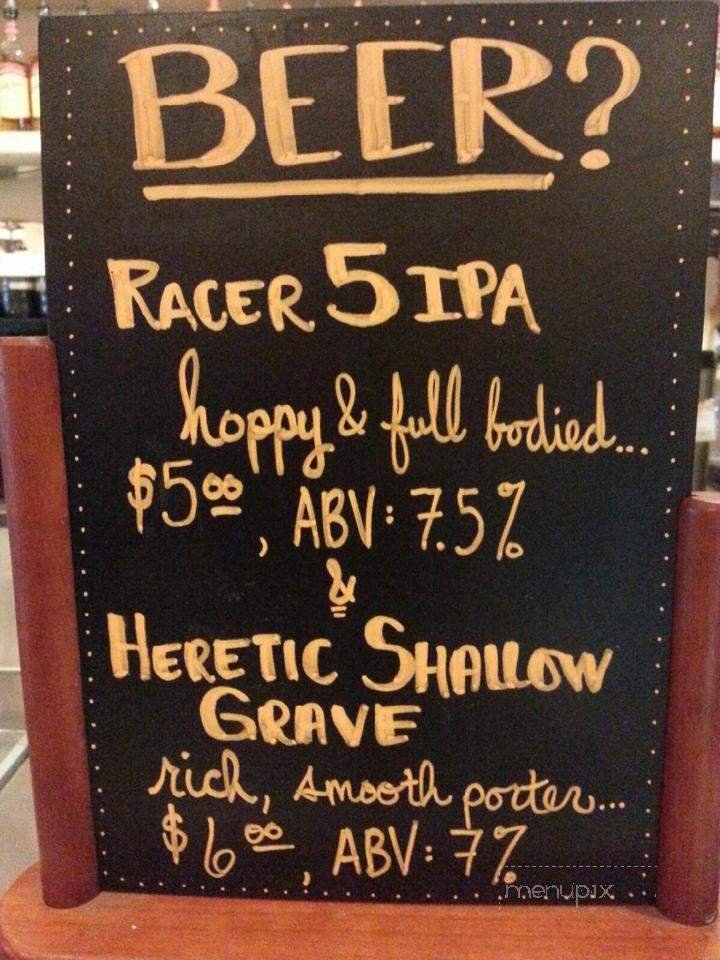 BEER?
RACER 5 IPA
hoppy & full bodied...
$5.00, ABV: 7.5%
&
HERETIC SHALLOW
GRAVE
rich, smooth porter...
$6.00, ABV: 7%
menupix